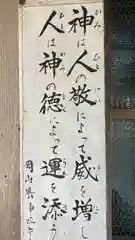 神は人の敬によって威を増し
人は神の徳によって運を添う
岡山県神社庁